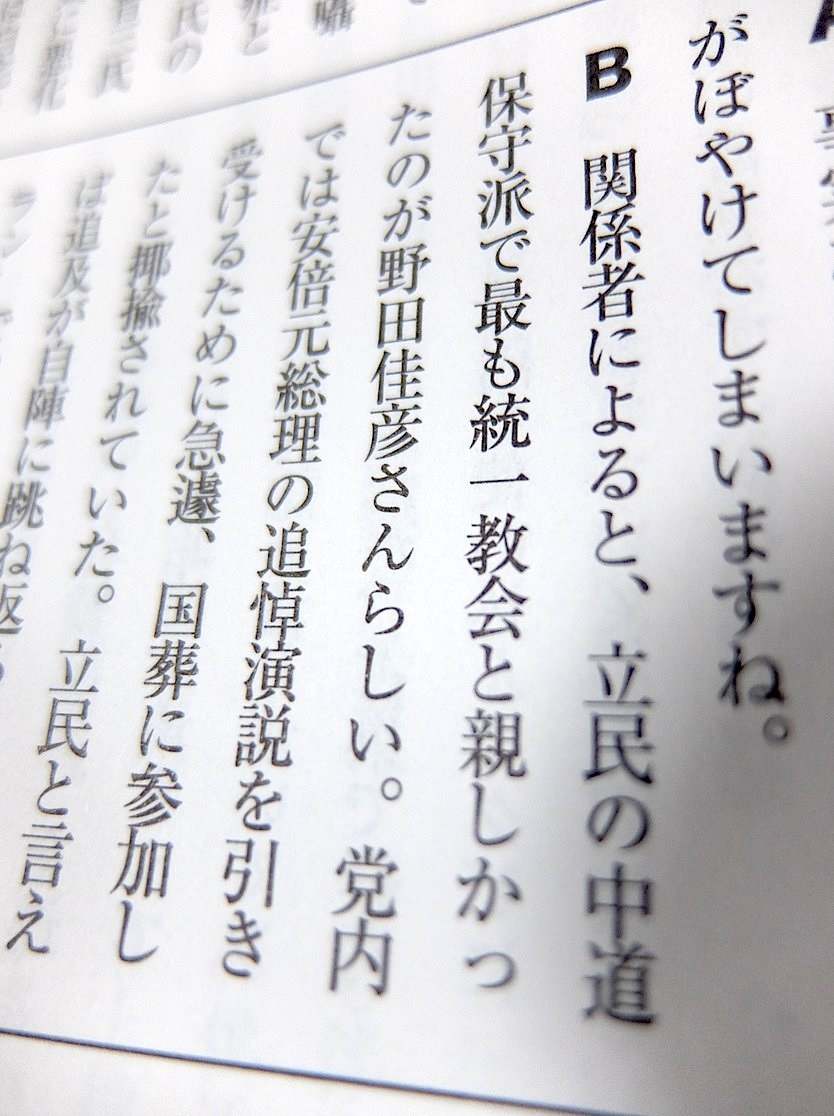 がぼやけてしまいますね。
B 関係者によると、立民の中道
保守派で最も統一教会と親しかっ
たのが野田佳彦さんらしい。党内
では安倍元総理の追悼演説を引き
受けるために急遽、国葬に参加し
たと揶揄されていた。立民と言え
ば追及が自陣に跳ね返る